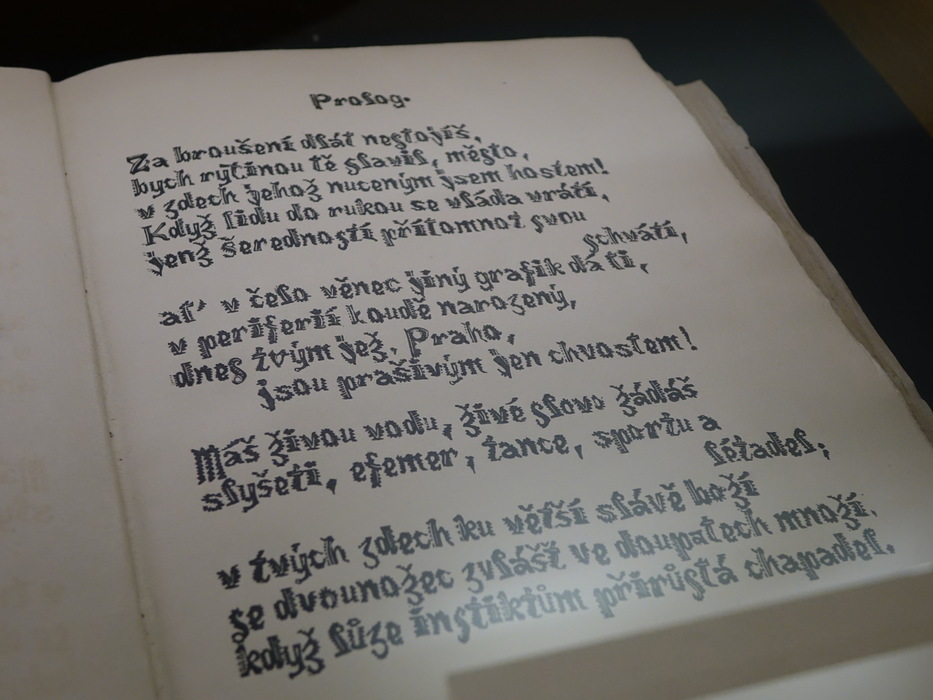 Prolog.
Za broušení dlát nestojíš,
bych rytinou tě slavil, město,
v zdech jehož nuceným jsem hostem!
Když lidu do rukou se vláda vrátí,
jenž šeredností přítomnož svou
schvátí,
ať' v čelo věnec jiný grafik dá ti,
v periferií koutě narozený,
dnes tvým jež, Praho,
jsou prašivým jen chvostem!
Máš živou vodu, živé slovo žádáš
slyšeti, efemer, tance, sportu a
létadel,
v tvých zdech ku větší slávě boží
se dvounožec zvlášť ve doupatech množí,
když lůze instiktům přirůstá chapadel.